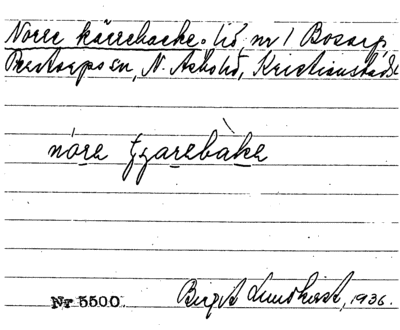 Norre kärrebacke. lid, nr 1 Bosarp,
sn, N. Åsbohd, Kristianstads l
nóre tʒarebàke
Nr 5500. Birgit Lundkvist, 1936.